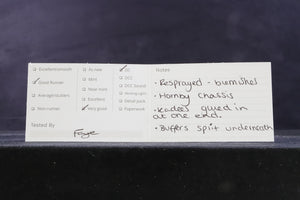 Excellent/smooth
Good Runner
Average/stutters
Non-runner
Tested By
As new
Mint
Near mint
Excellent
Very good
DCC
DCC Sound
Detail pack
Paperwork
Notes
• Resprayed - burnished
• Hornby chassis
• Kadees glued in
at one end.
• Buffers split underneath